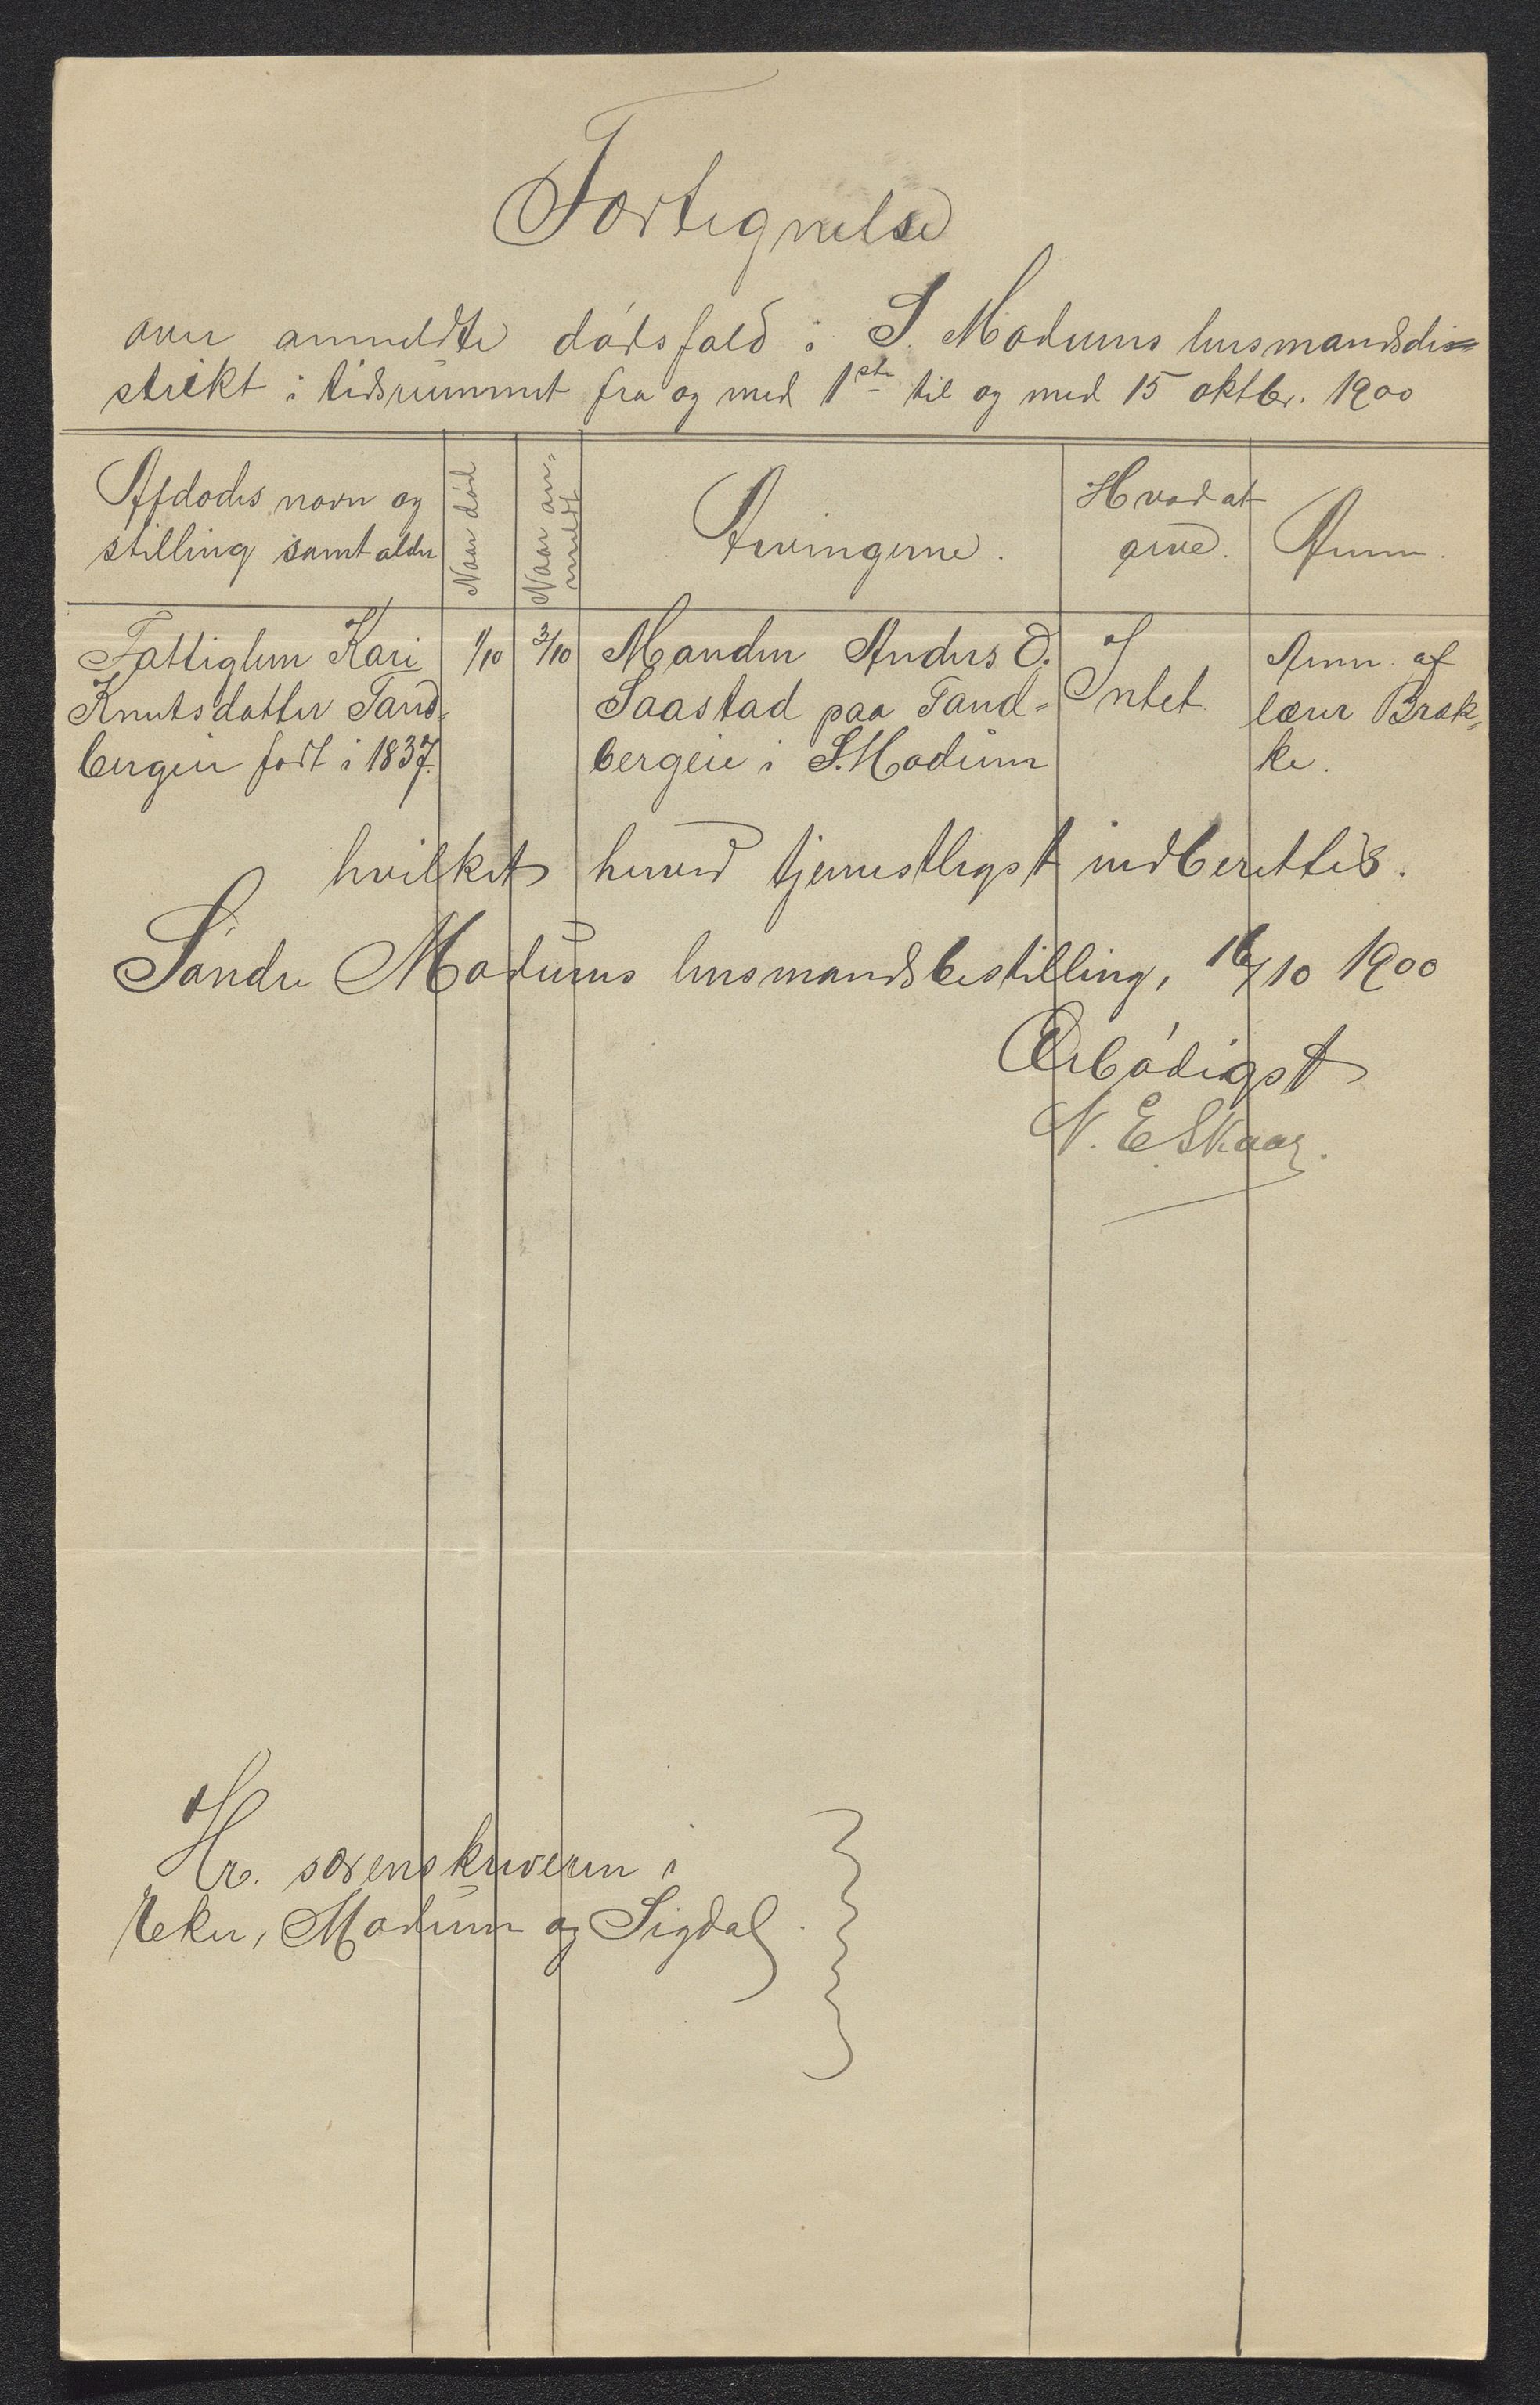 Fortegnelse
over anmeldte dødsfald i S. Modums lensmandsdi-
strikt i tidsrummet fra og med 1ste til og med 15 oktbr. 1900
Afdødes navn og
stilling samt alder
Naar død
Naar an-
meldt
Arvingerne.
Hvad at
arve.
Anm.
Fattiglem Kari
Knutsdatter Tand-
bergeie født i 1837.
1/10
3/10
Manden Anders O.
Saastad paa Tand-
bergeie i S. Modum
Intet.
Anm. af
lærer Bræk-
ke.
hvilket herved tjenestligst indberettes.
Søndre Modums lensmandsbestilling, 16/10 1900
Ærbødigst
N. E. Skaar.
Hr. sorenskriveren i
Eker, Modum og Sigdal.